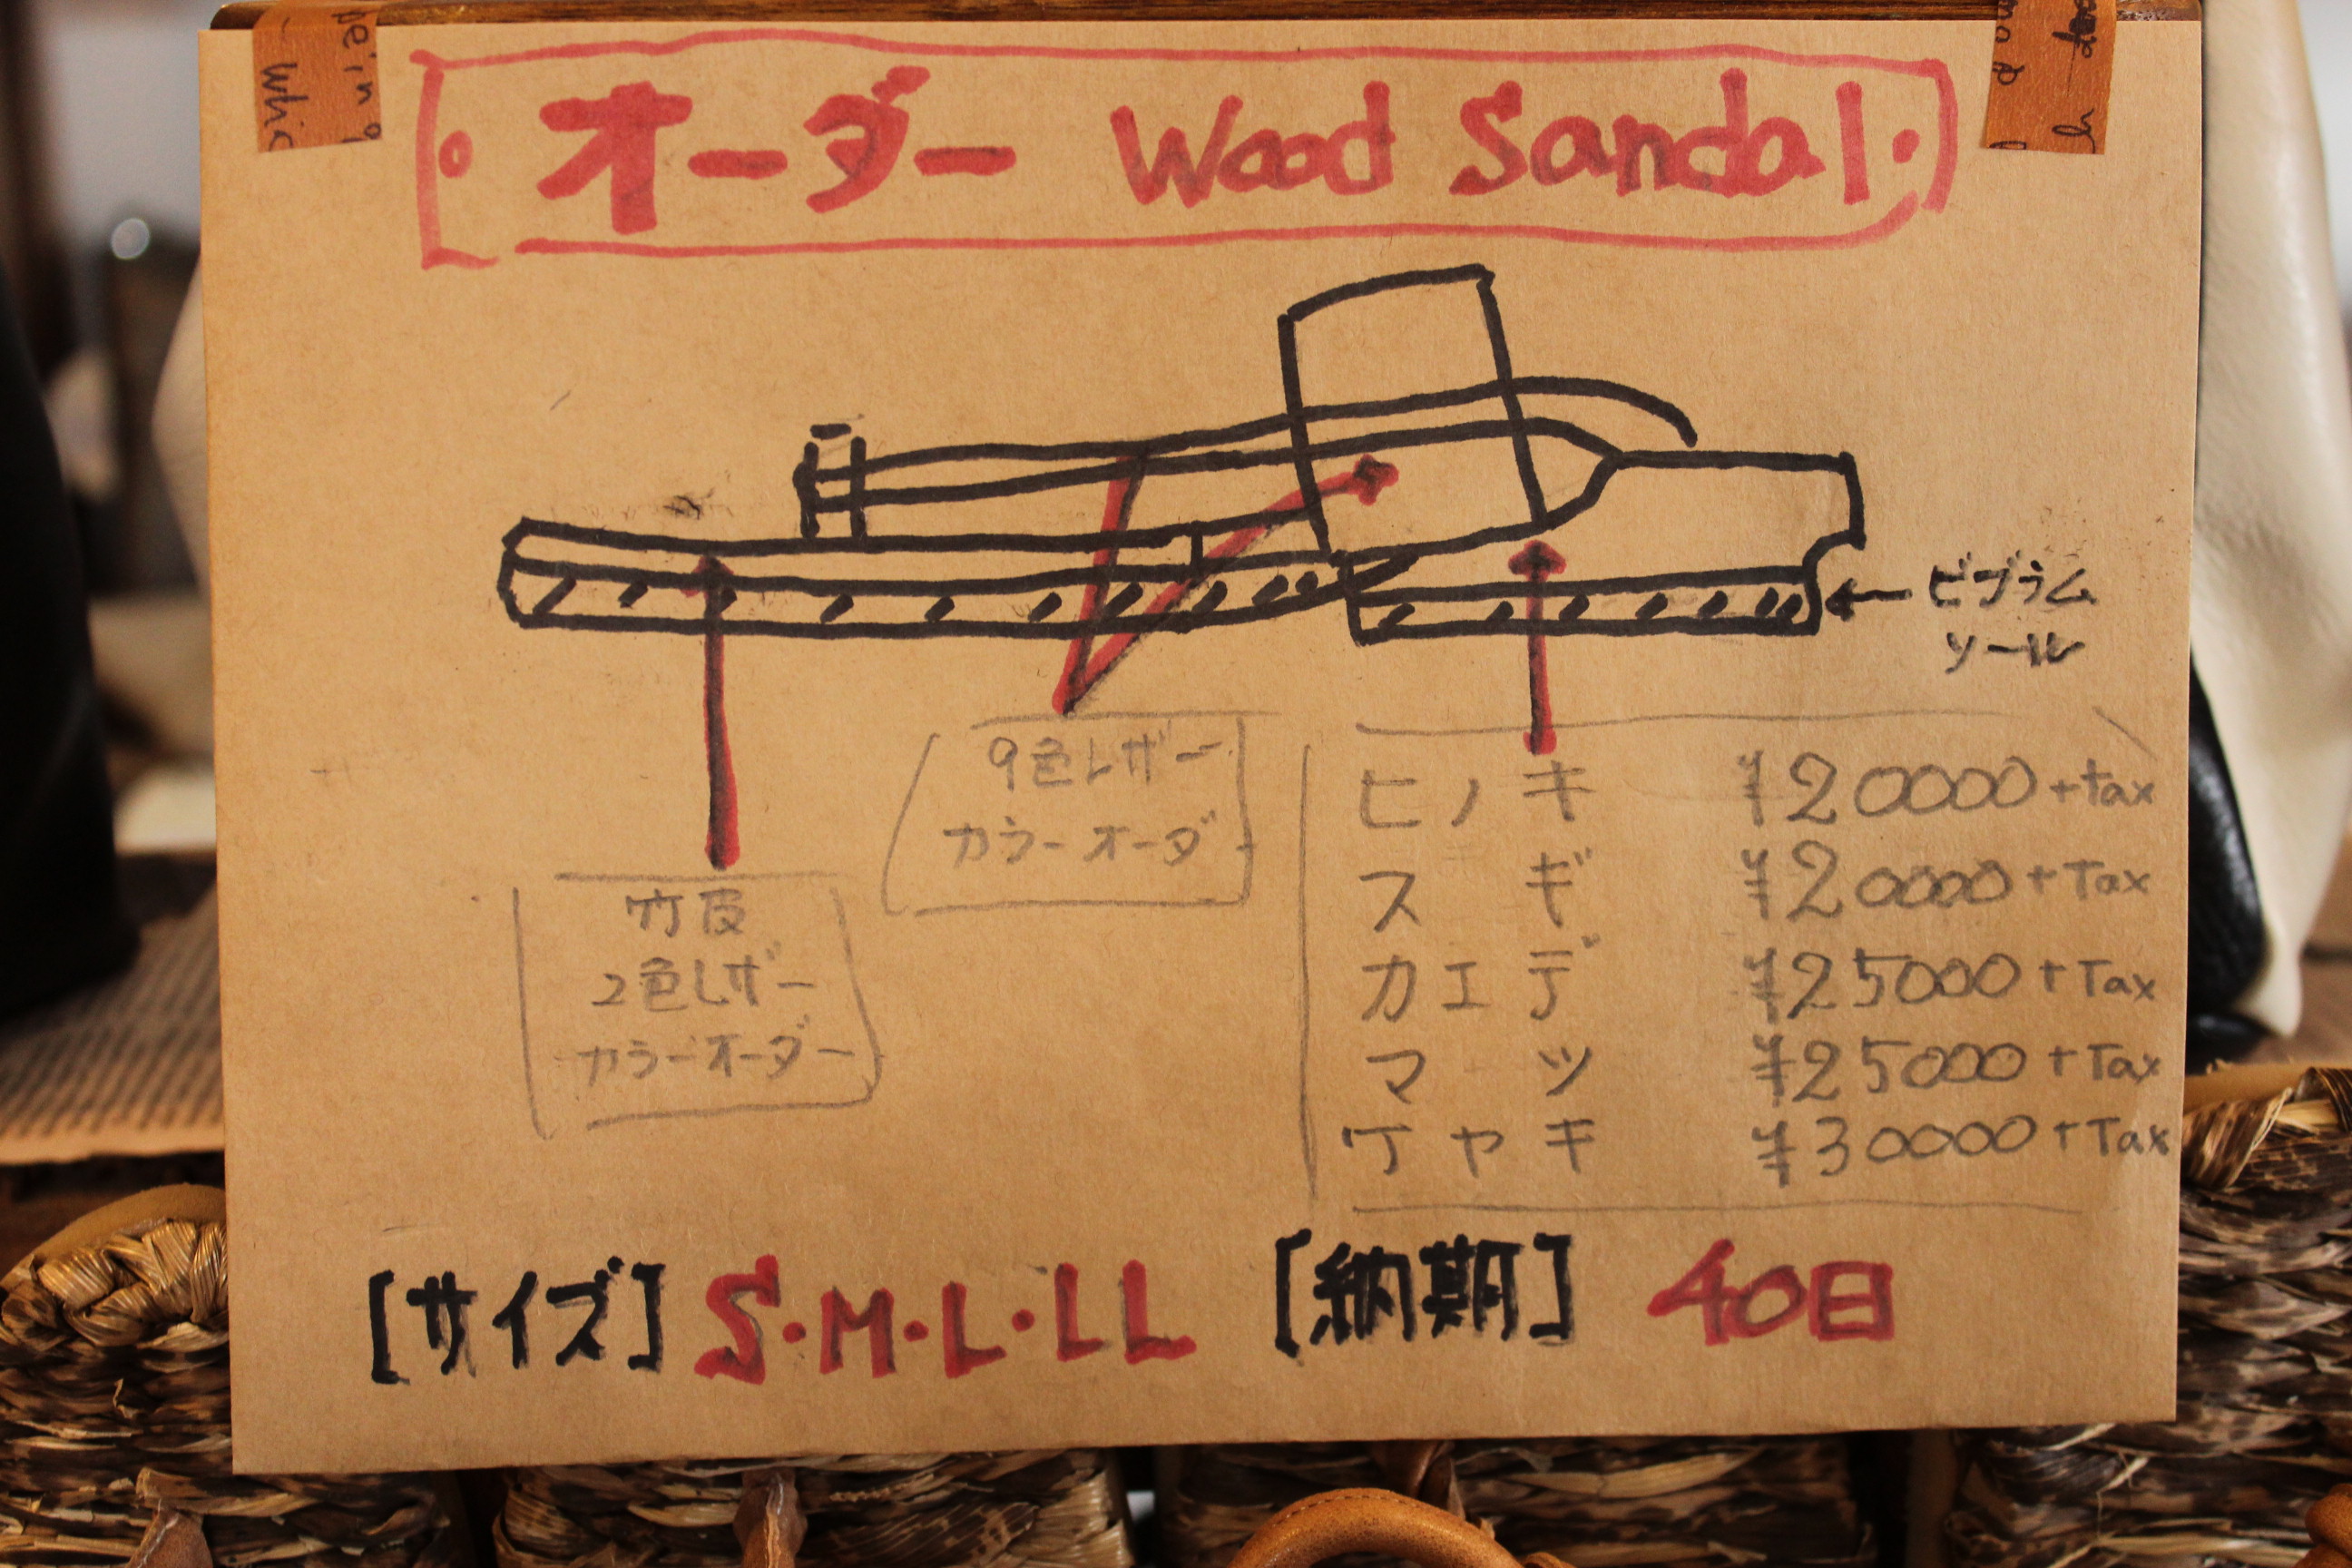 オーダー Wood Sandal
ビブラム
ソール
9色レザー
カラーオーダー
竹皮
2色レザー
カラーオーダー
ヒノキ ¥20000+tax
スギ ¥20000+Tax
カエデ ¥25000+Tax
マツ ¥25000+Tax
ケヤキ ¥30000+Tax
[サイズ] S・M・L・LL [納期] 40日